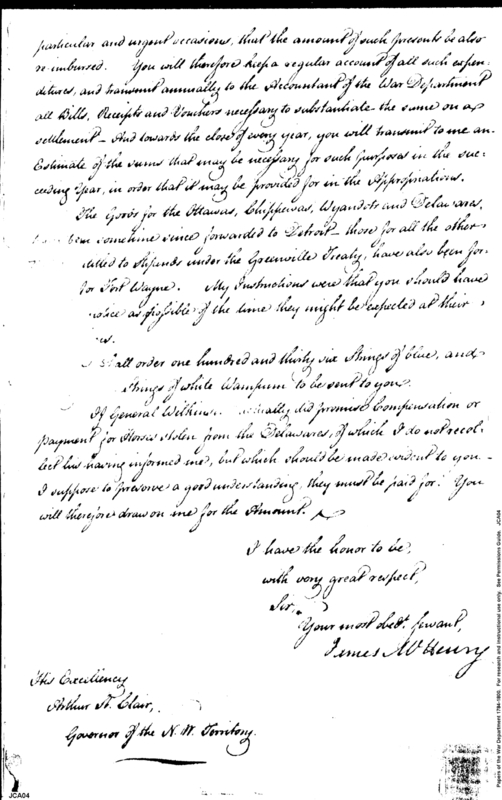 particular and urgent occasions, that the amount of such presents be also
re-imbursed. You will therefore keep a regular account of all such expen-
ditures, and transmit annually to the Accountant of the War Department
all Bills, Receipts and Vouchers necessary to substantiate the same on a
settlement - And towards the close of every year, you will transmit to me an
Estimate of the sums that may be necessary for such purposes in the suc-
ceeding Year, in order that it may be provided for in the Appropriations.
The Goods for the Ottawas, Chippewas, Wyandots and Delawares,
been sometime since forwarded to Detroit - those for all the other
titled to Stipends under the Greenville Treaty, have also been for-
for Fort Wayne. My Instructions were that you should have
notice as possible of the time they might be expected at their
shall order one hundred and thirty six strings of blue, and
strings of white Wampum to be sent to you.
If General Wilkins actually did promise Compensation or
payment for Horses stolen from the Delawares, of which I do not recol-
lect his having informed me, but which should be made evident to you -
I suppose to preserve a good understanding, they must be paid for. You
will therefore draw on me for the Amount.
I have the honor to be,
with very great respect,
Sir,
Your most obedt. servant,
James McHenry
His Excellency
Arthur St. Clair,
Governor of the N. W. Territory.
JCA04
Papers of the War Department 1784-1800. For research and instructional use only. See Permissions Guide. JCA04